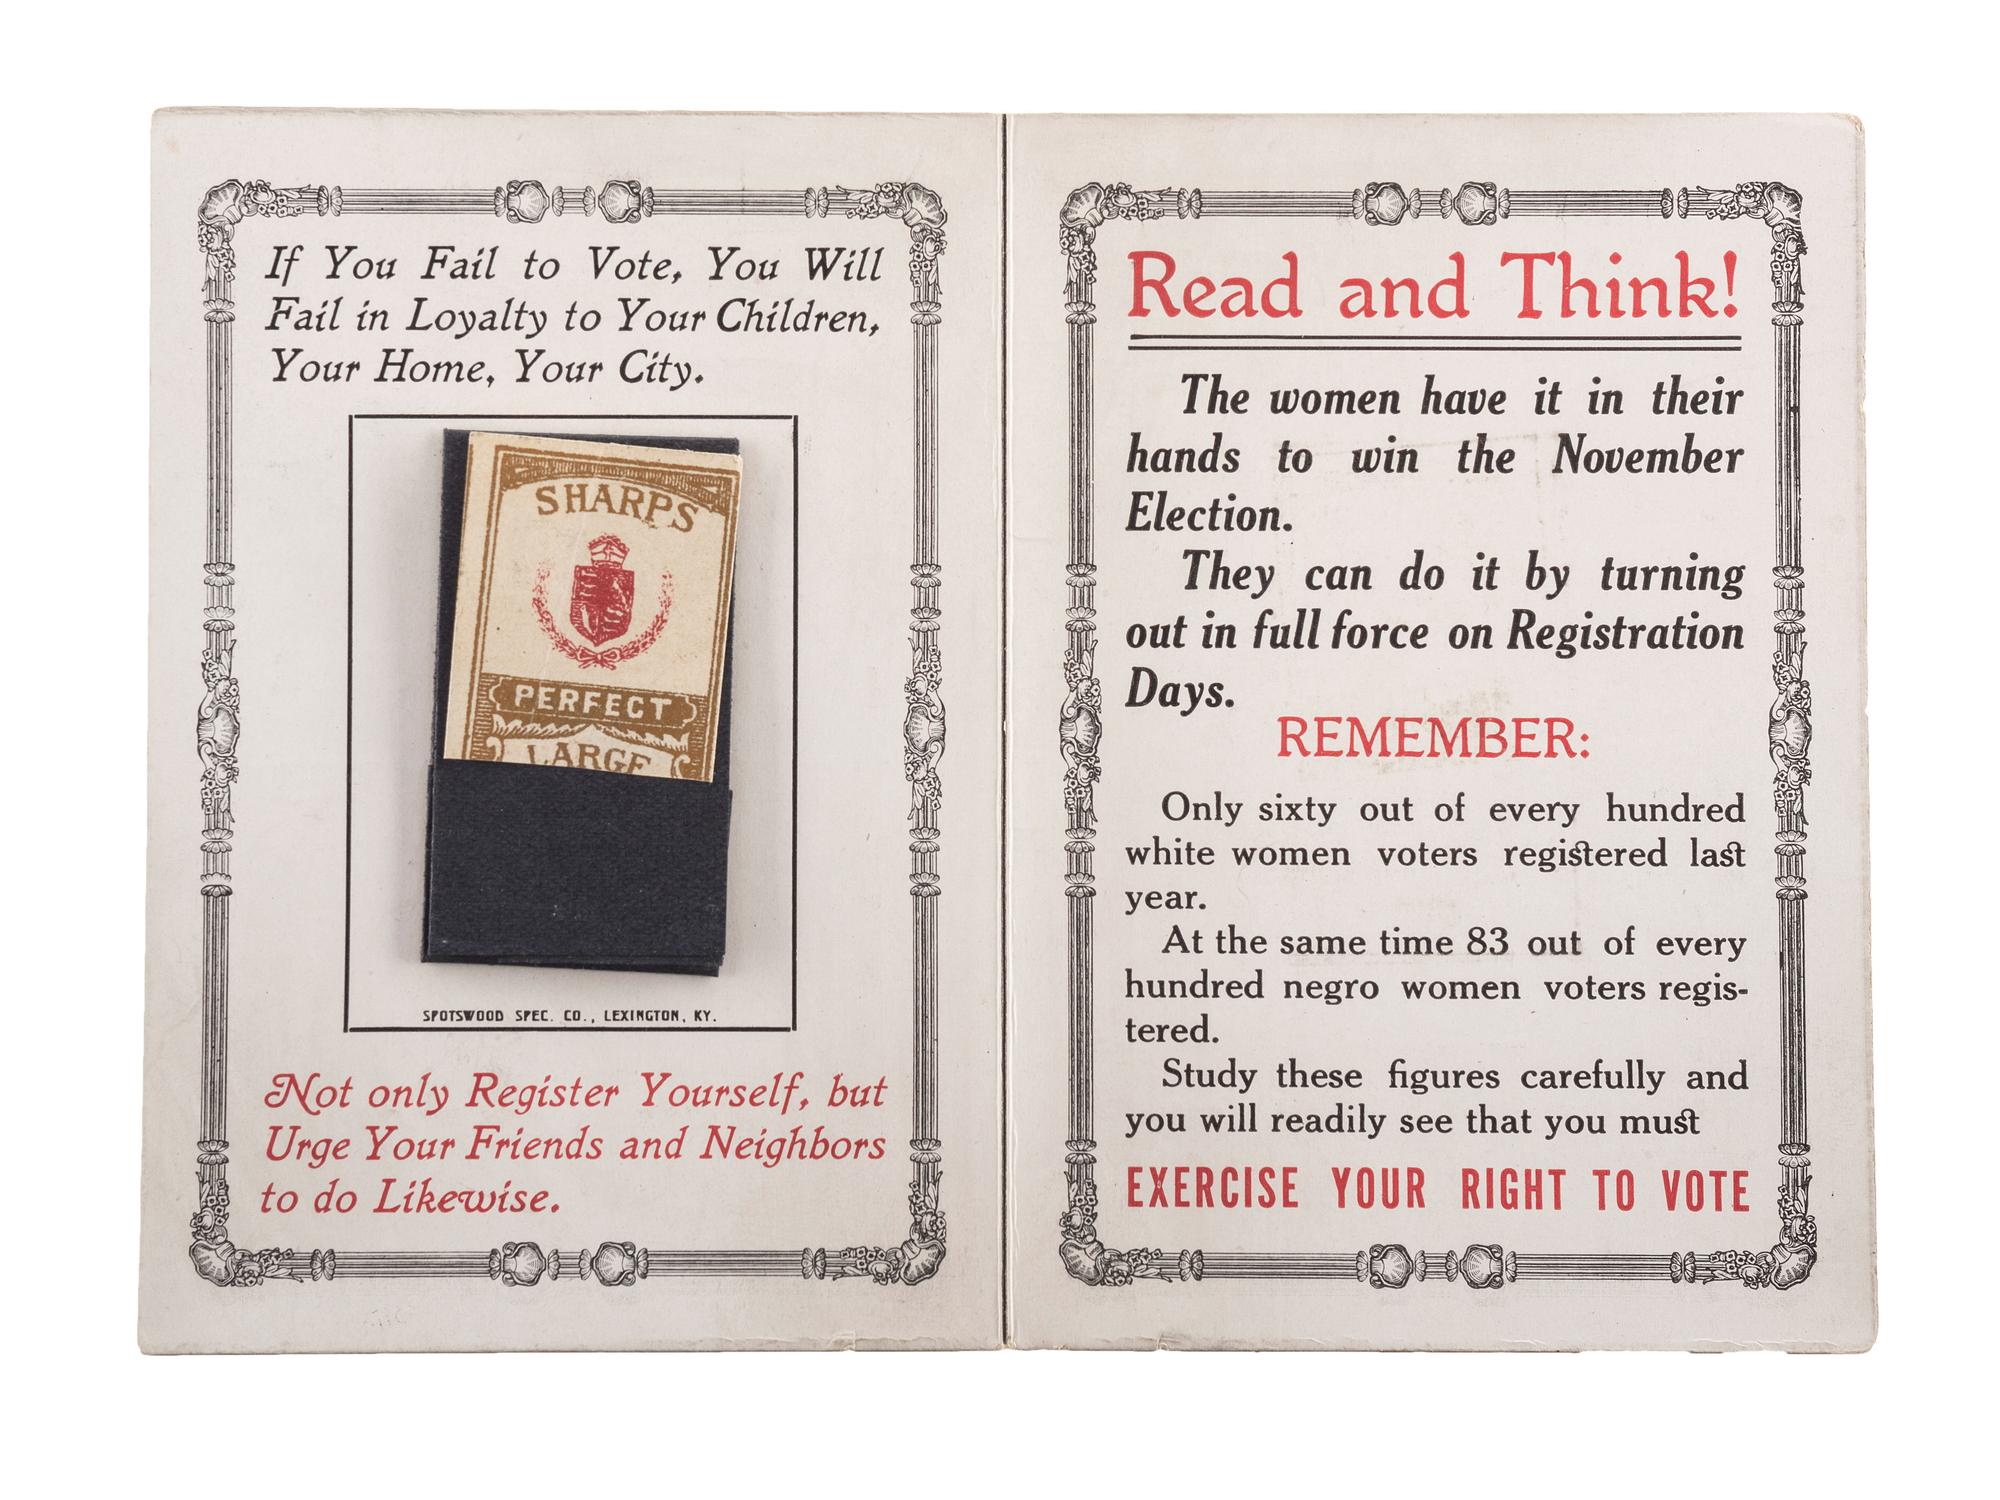 If You Fail to Vote, You Will
Fail in Loyalty to Your Children,
Your Home, Your City.
SHARPS
PERFECT
LARGE
SPOTSWOOD SPEC. CO., LEXINGTON, KY.
Not only Register Yourself, but
Urge Your Friends and Neighbors
to do Likewise.
Read and Think!
The women have it in their
hands to win the November
Election.
They can do it by turning
out in full force on Registration
Days.
REMEMBER:
Only sixty out of every hundred
white women voters registered last
year.
At the same time 83 out of every
hundred negro women voters regis-
tered.
Study these figures carefully and
you will readily see that you must
EXERCISE YOUR RIGHT TO VOTE